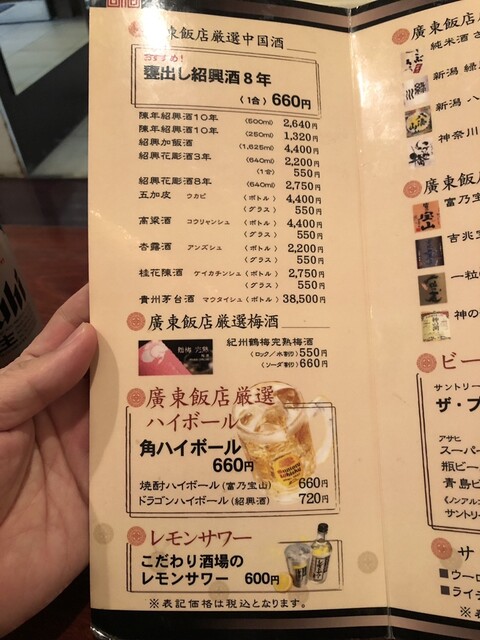 廣東飯店厳選中国酒
おすすめ!
甕出し紹興酒8年
(1合) 660円
陳年紹興酒10年 (500ml) 2,640円
陳年紹興酒10年 (250ml) 1,320円
紹興加飯酒 (1,625ml) 4,400円
紹興花彫酒3年 (640ml) 2,200円
(1合) 550円
紹興花彫酒8年 (640ml) 2,750円
五加皮 ウカピ (ボトル) 4,400円
(グラス) 550円
高粱酒 コウリャンシュ (ボトル) 4,400円
(グラス) 550円
杏露酒 アンズシュ (ボトル) 2,200円
(グラス) 550円
桂花陳酒 ケイカチンシュ (ボトル) 2,750円
(グラス) 550円
貴州茅台酒 マウタイシュ (ボトル) 38,500円
廣東飯店厳選梅酒
紀州鶴梅完熟梅酒
(ロック/水割) 550円
(ソーダ割) 660円
廣東飯店厳選
ハイボール
角ハイボール
660円
焼酎ハイボール(富乃宝山) 660円
ドラゴンハイボール(紹興酒) 720円
レモンサワー
こだわり酒場の
レモンサワー 600円
※表記価格は税込となります。
廣東飯
純米酒
新潟
新潟 八
神奈川
廣東飯
富乃宝
吉兆宝
一粒
神の
ビー
サントリー
ザ・プ
アサヒ
スーパー
瓶ビー
青島ビ
(ノンアル
サントリ
サ
■ウーロ
■ライ